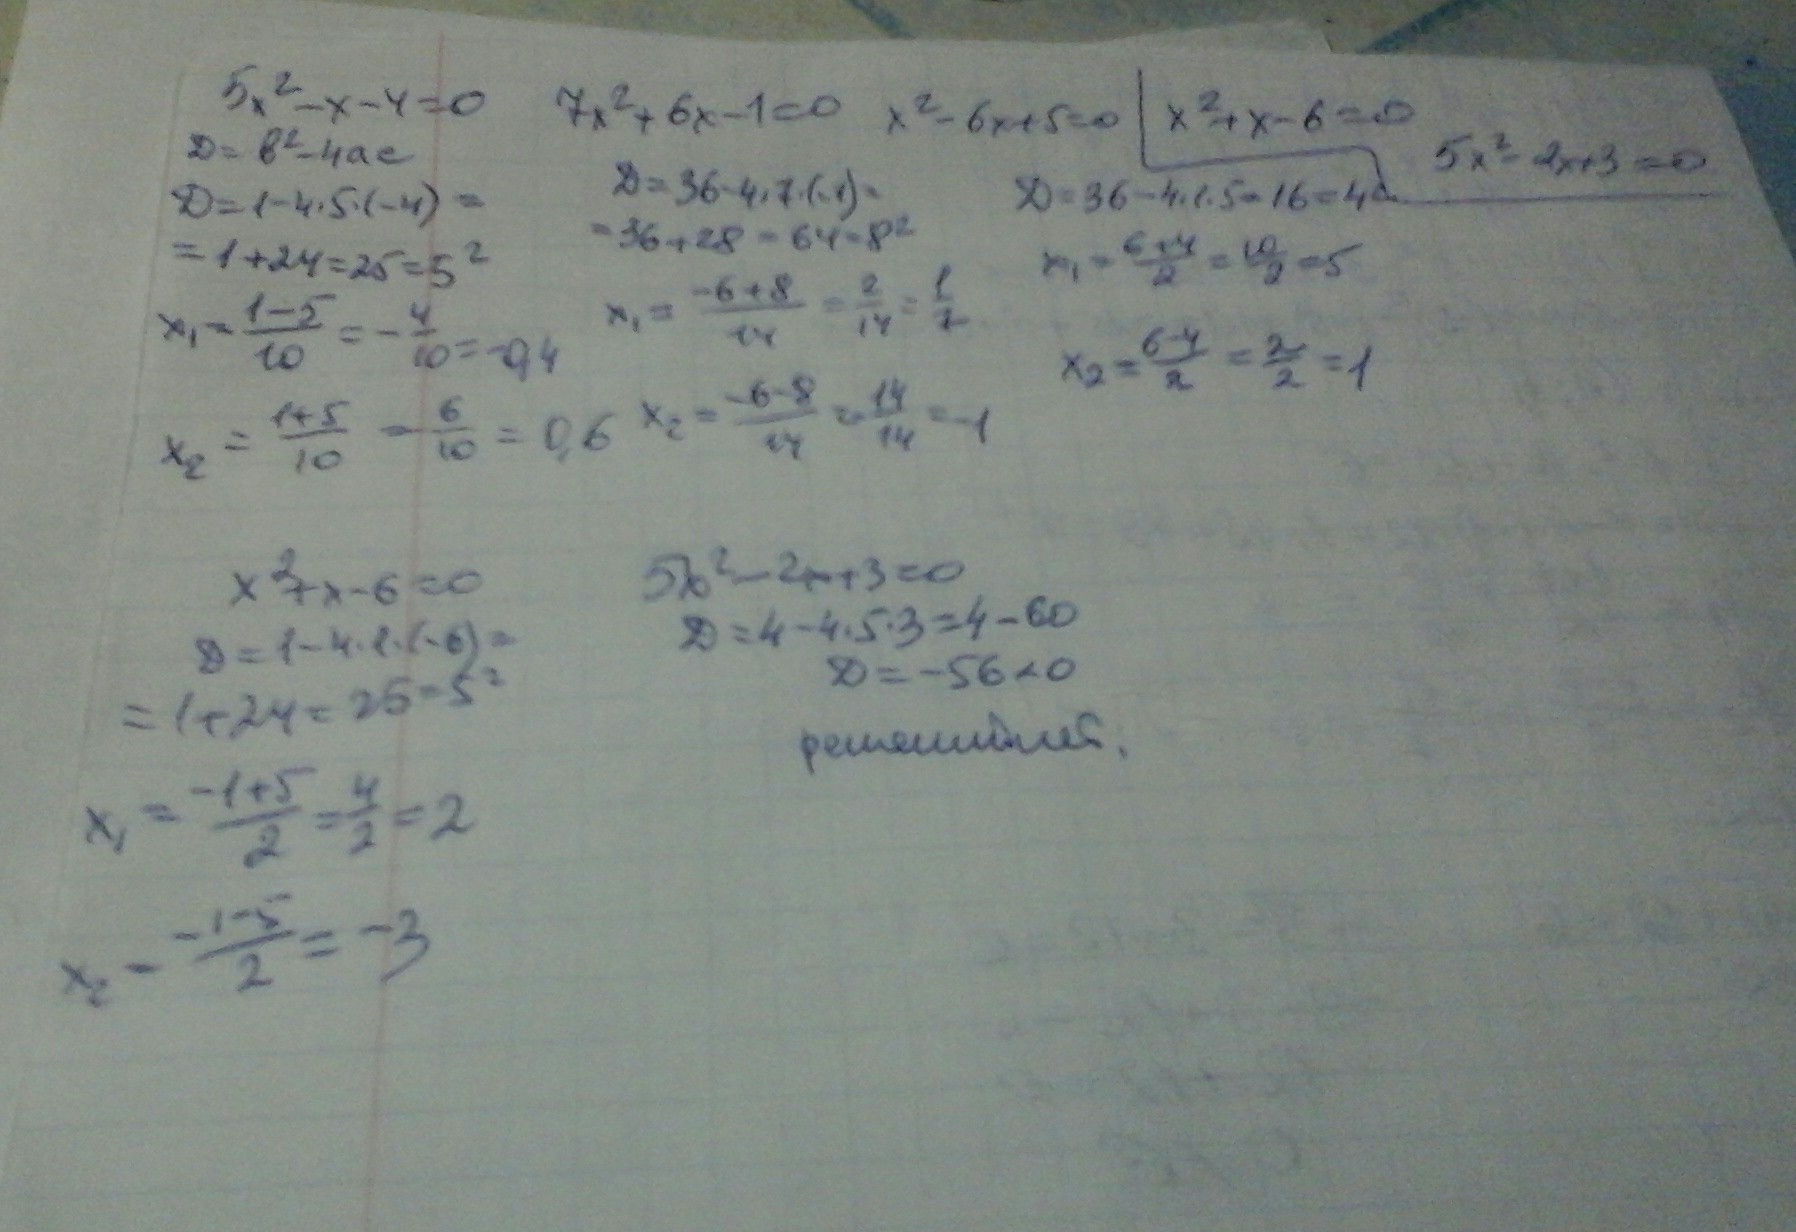 5x² - x - 4 = 0
D = b² - 4ac
D = 1 - 4·5·(-4) =
= 1 + 24 = 25 = 5²
x₁ = (1-5)/10 = -4/10 = -0,4
x₂ = (1+5)/10 = 6/10 = 0,6
7x² + 6x - 1 = 0
D = 36 - 4·7·(-1) =
= 36 + 28 = 64 = 8²
x₁ = (-6+8)/14 = 2/14 = 1/7
x₂ = (-6-8)/14 = -14/14 = -1
x² - 6x + 5 = 0
D = 36 - 4·1·5 = 16 = 4²
x₁ = (6+4)/2 = 10/2 = 5
x₂ = (6-4)/2 = 2/2 = 1
x² + x - 6 = 0
5x² - 2x + 3 = 0
x² + x - 6 = 0
D = 1 - 4·1·(-6) =
= 1 + 24 = 25 = 5²
x₁ = (-1+5)/2 = 4/2 = 2
x₂ = (-1-5)/2 = -3
5x² - 2x + 3 = 0
D = 4 - 4·5·3 = 4 - 60
D = -56 < 0
решений нет.